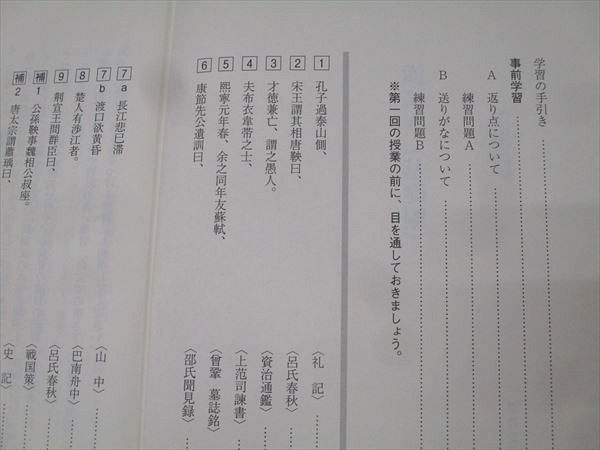 学習の手引き
事前学習
A 返り点について
練習問題A
B 送りがなについて
練習問題B
※第一回の授業の前に、目を通しておきましょう。
1 孔子過泰山側、〈礼記〉
2 宋王謂其相唐鞅曰、〈呂氏春秋〉
3 才徳兼亡、謂之愚人。〈資治通鑑〉
4 夫布衣韋帯之士、〈上范司諫書〉
5 熙寧元年春、余之同年友蘇軾、〈曾鞏 墓誌銘〉
6 康節先公遺訓曰、〈邵氏聞見録〉
7a 長江悲已滞〈山中〉
7b 渡口欲黄昏〈巴南舟中〉
8 楚人有渉江者。〈呂氏春秋〉
9 荊宣王問群臣曰、〈戦国策〉
補1 公孫鞅事魏相公叔座。〈史記〉
補2 唐太宗謂蕭瑀曰、